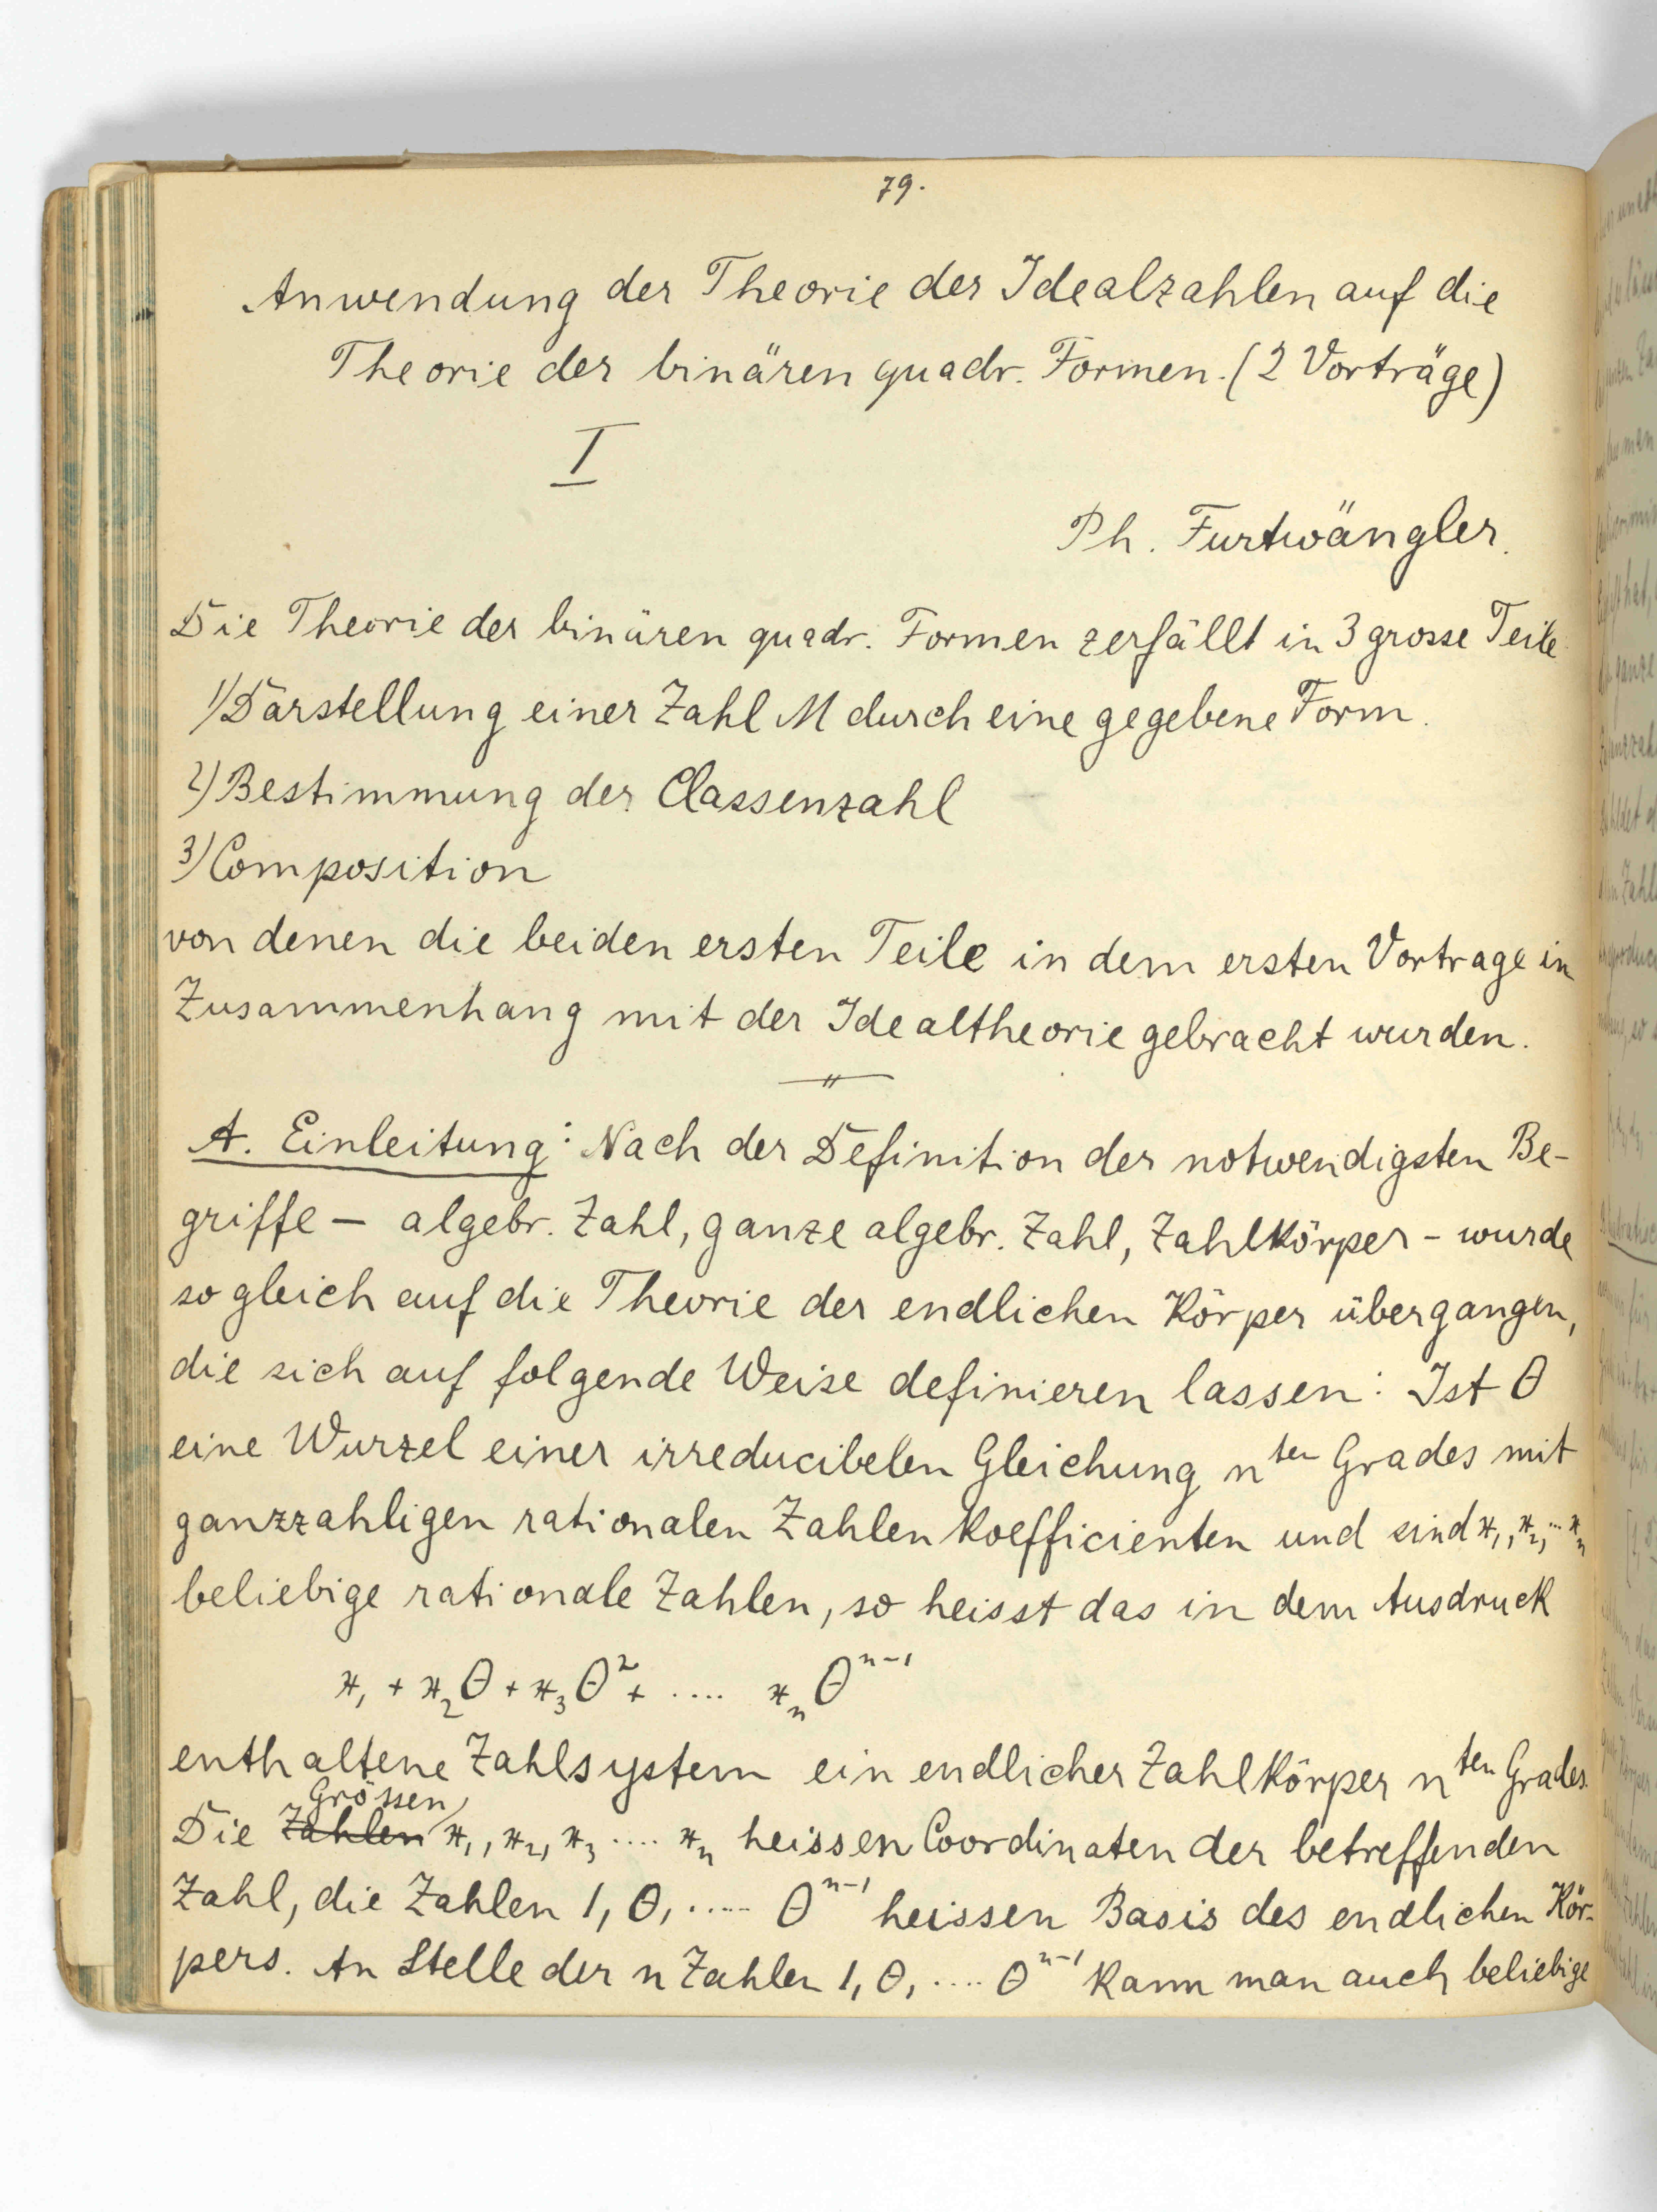 79.
Anwendung der Theorie der Idealzahlen auf die
Theorie der binären quadr. Formen. (2 Vorträge)
I
Ph. Furtwängler.
Die Theorie der binären quadr. Formen zerfällt in 3 grosse Teile
1) Darstellung einer Zahl M durch eine gegebene Form.
2) Bestimmung der Classenzahl
3) Composition
von denen die beiden ersten Teile in dem ersten Vortrage in
Zusammenhang mit der Idealtheorie gebracht wurden.
A. Einleitung: Nach der Definition der notwendigsten Be-
griffe – algebr. Zahl, ganze algebr. Zahl, Zahlkörper – wurde
sogleich auf die Theorie der endlichen Körper übergangen,
die sich auf folgende Weise definieren lassen: Ist θ
eine Wurzel einer irreducibelen Gleichung n^ten Grades mit
ganzzahligen rationalen Zahlenkoefficienten und sind x₁, x₂, ... xₙ
beliebige rationale Zahlen, so heisst das in dem Ausdruck
x₁ + x₂θ + x₃θ² + .... xₙθ^(n-1)
enthaltene Zahlsystem ein endlicher Zahlkörper n^ten Grades.
Grössen
Die Zahlen x₁, x₂, x₃ .... xₙ heissen Coordinaten der betreffenden
Zahl, die Zahlen 1, θ, ..... θ^(n-1) heissen Basis des endlichen Kör-
pers. An Stelle der n Zahlen 1, θ, .... θ^(n-1) kann man auch beliebige